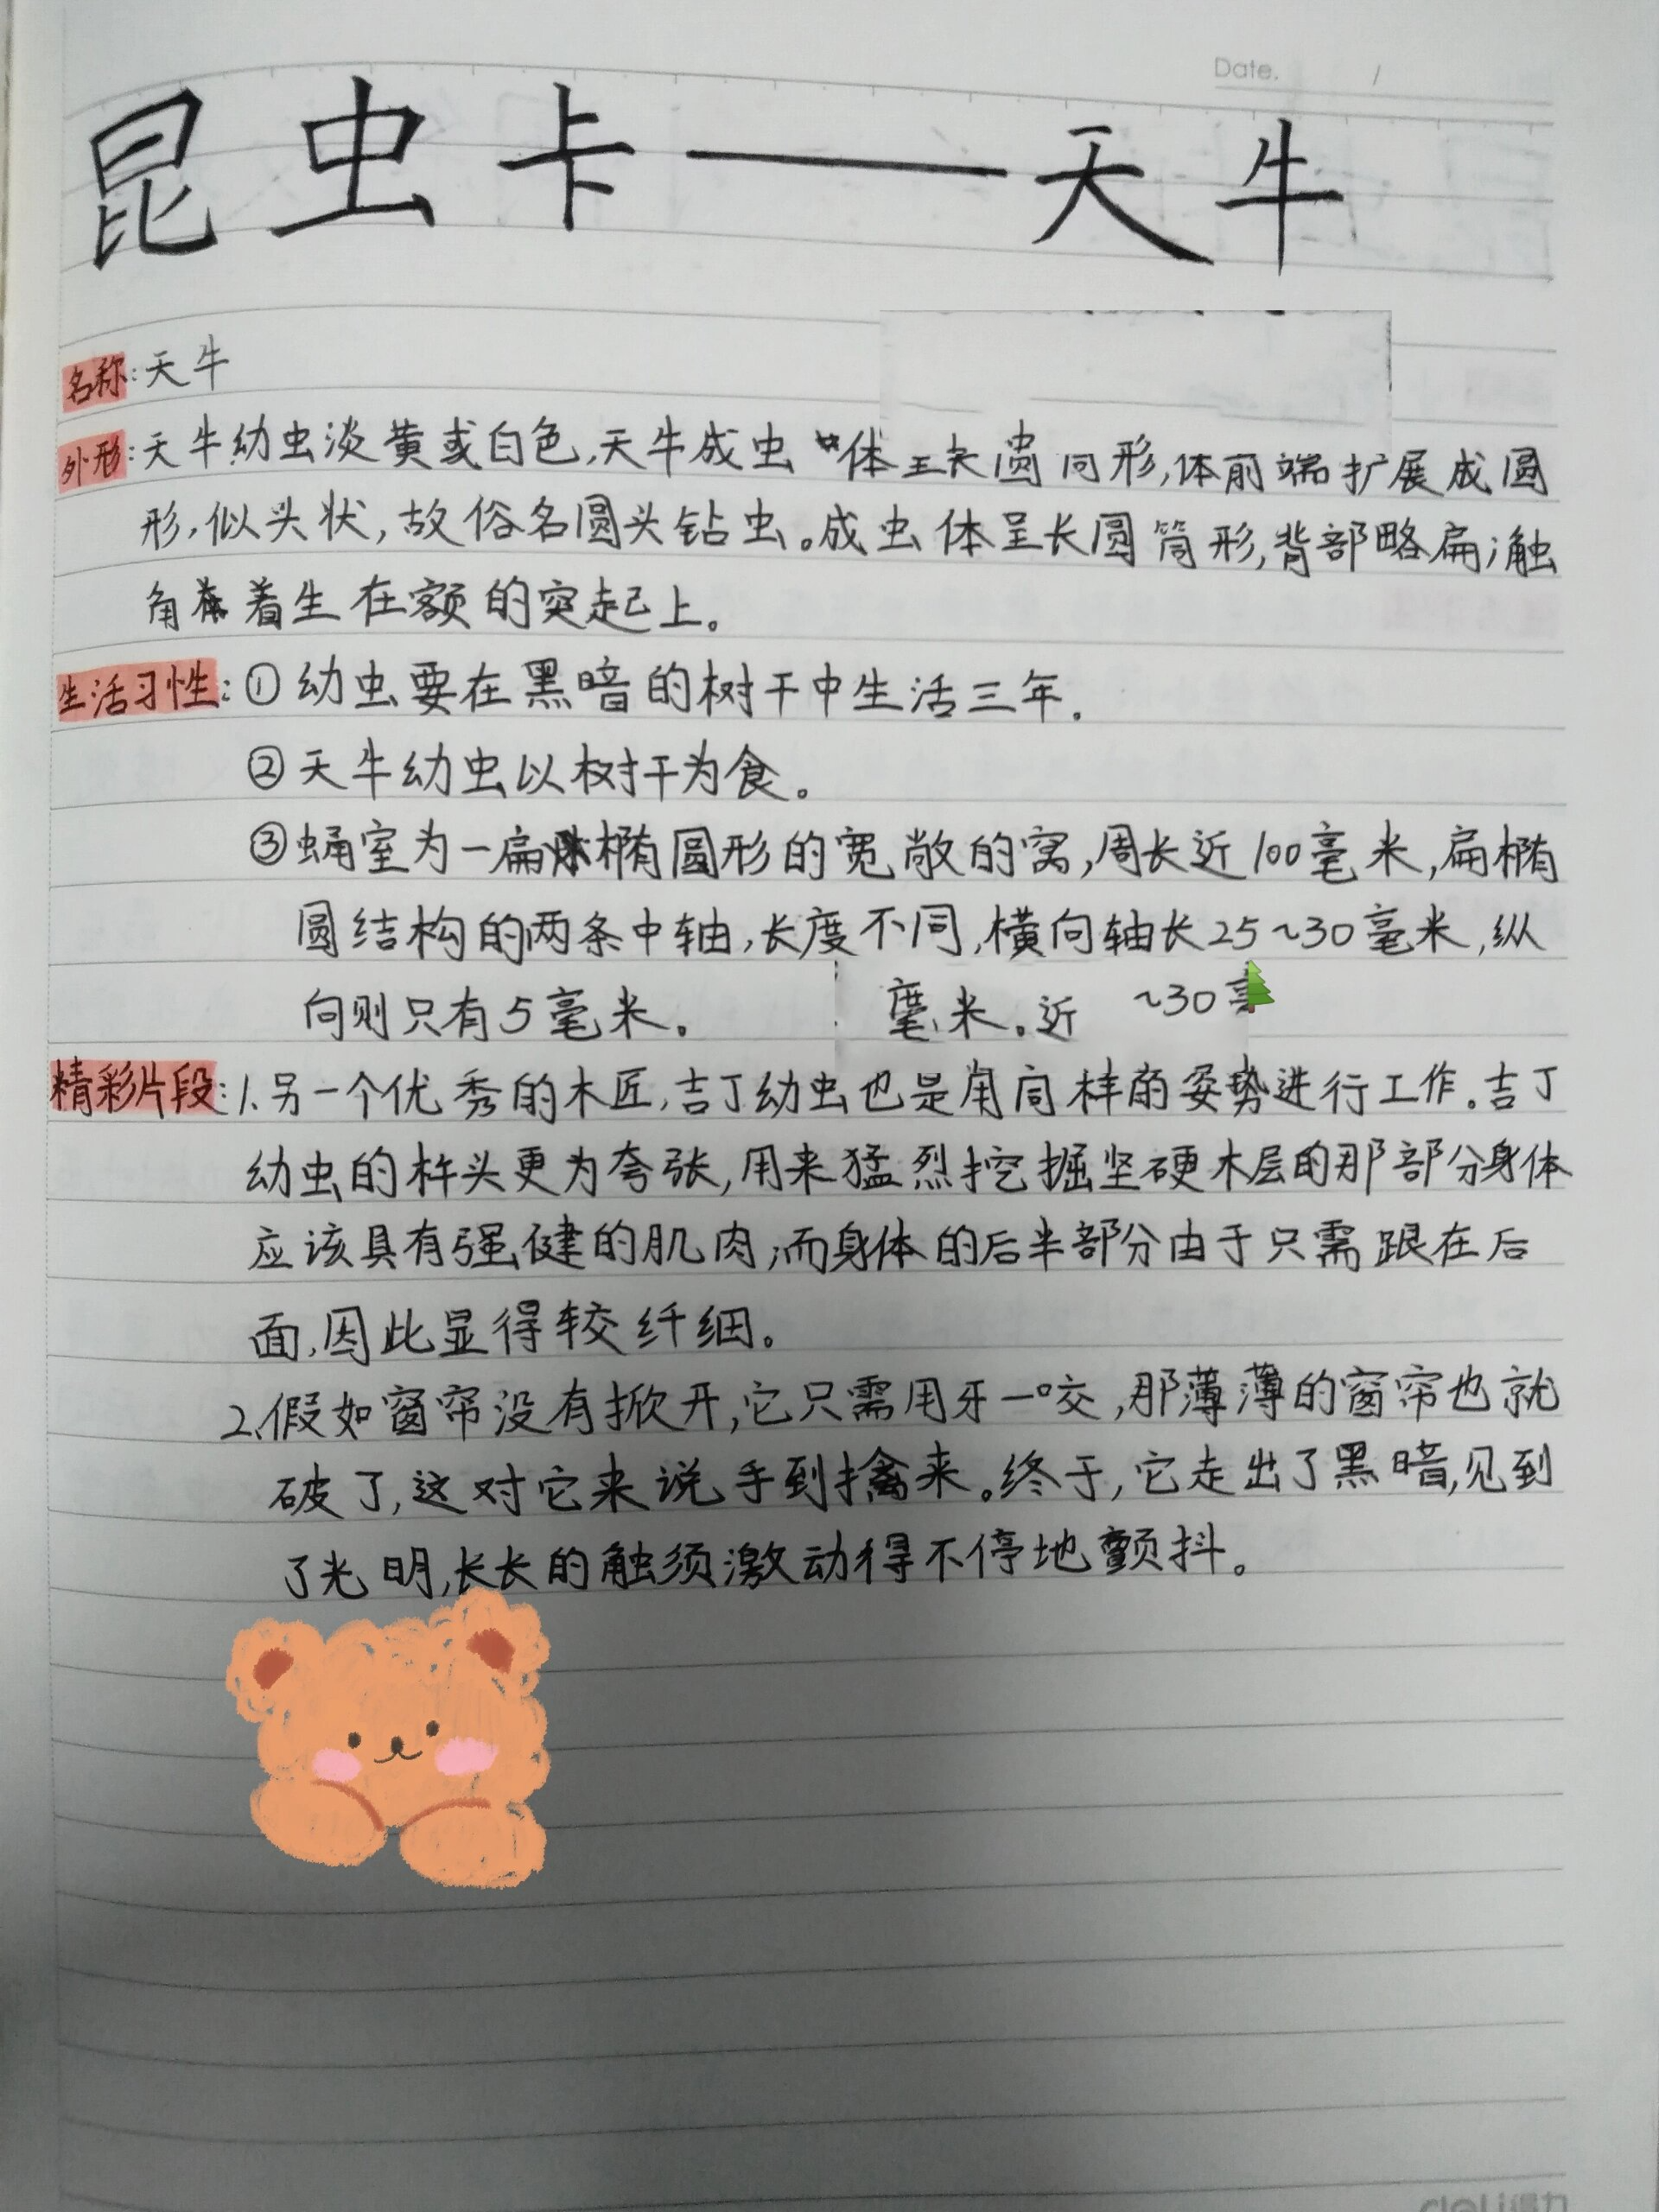 Date. /
昆虫卡——天牛
名称:天牛
外形:天牛幼虫淡黄或白色,天牛成虫 体 长圆 形,体前端扩展成圆
形,似头状,故俗名圆头钻虫。成虫体呈长圆筒形,背部略扁;触
角着生在额的突起上。
生活习性:①幼虫要在黑暗的树干中生活三年.
②天牛幼虫以树干为食。
③蛹室为一扁椭圆形的宽敞的窝,周长近100毫米,扁椭
圆结构的两条中轴,长度不同,横向轴长25~30毫米,纵
向则只有5毫米。 米。近 ~30
精彩片段:1.另一个优秀的木匠,吉丁幼虫也是用同样的姿势进行工作。吉丁
幼虫的杵头更为夸张,用来猛烈挖掘坚硬木层的那部分身体
应该具有强健的肌肉;而身体的后半部分由于只需跟在后
面,因此显得较纤细。
2.假如窗帘没有掀开,它只需用牙一咬,那薄薄的窗帘也就
破了,这对它来说手到擒来。终于,它走出了黑暗,见到
了光明,长长的触须激动得不停地颤抖。
deli得力